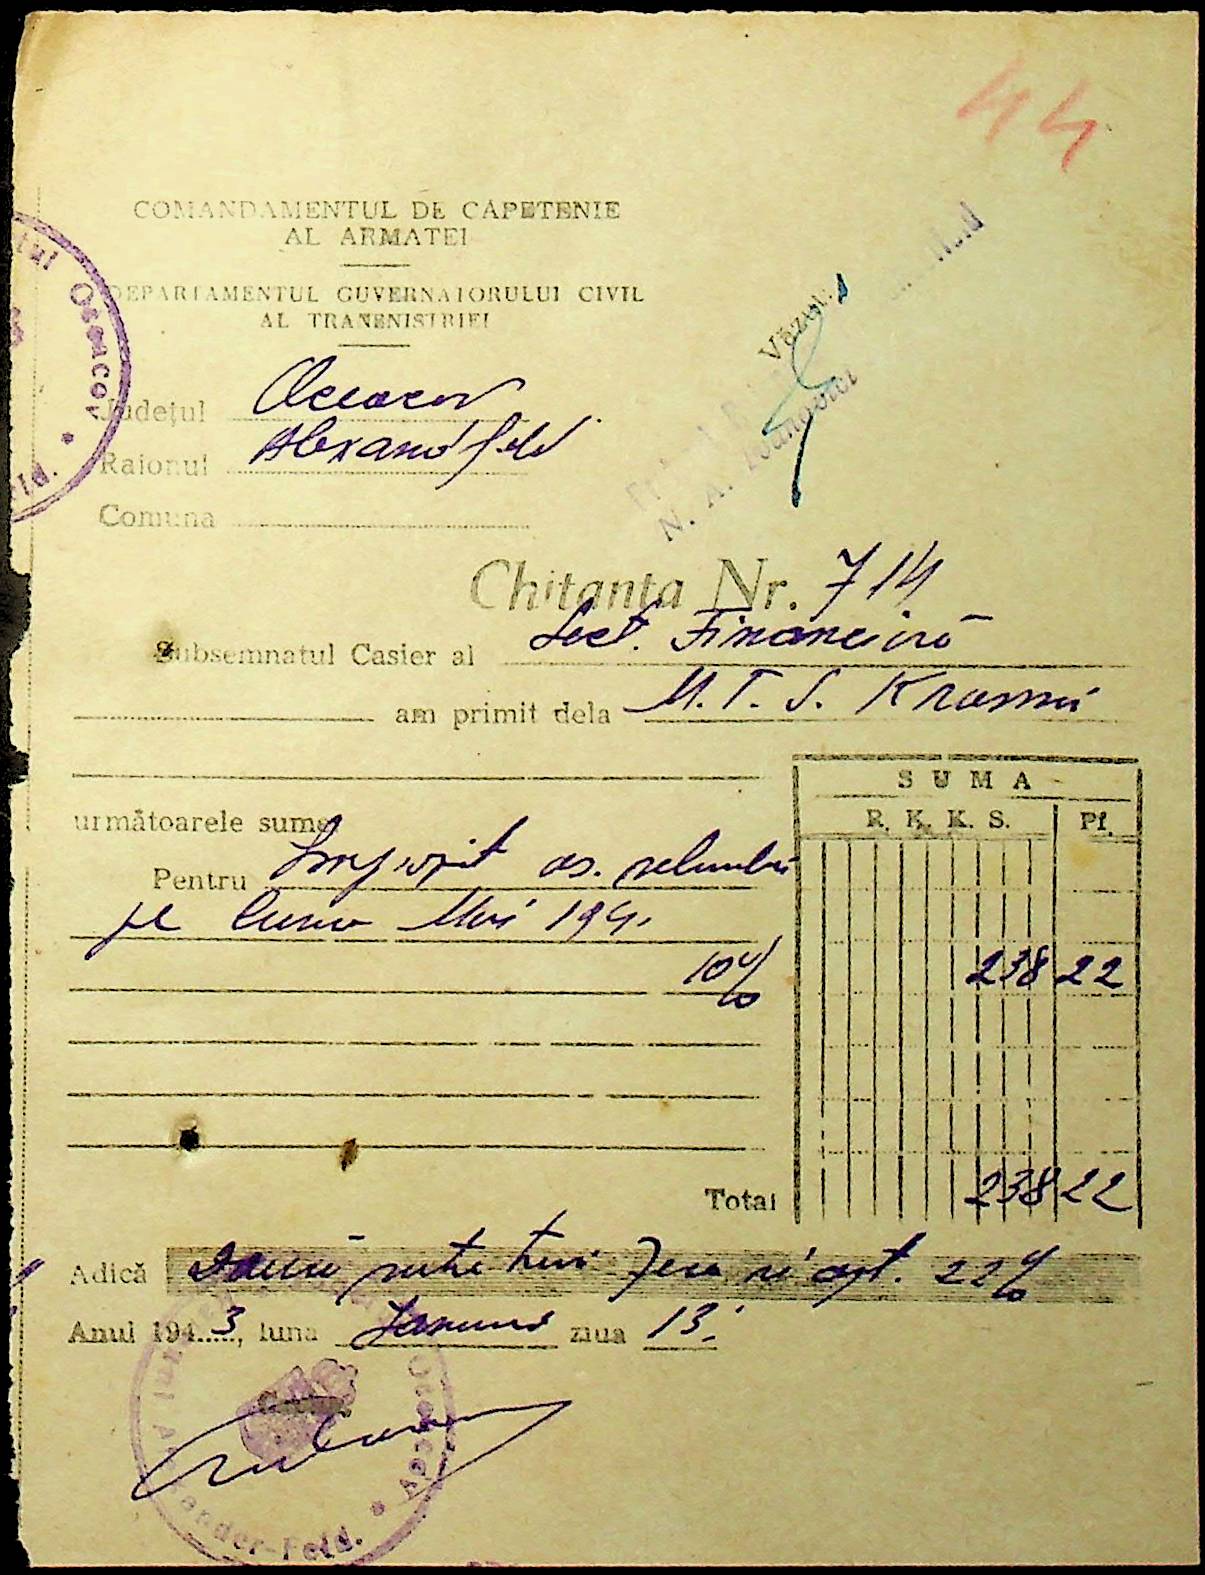 44
COMANDAMENTUL DE CAPETENIE
AL ARMATEI
DEPARTAMENTUL GUVERNATORULUI CIVIL
AL TRANSNISTRIEI
Văzut
N. A. Ioanovici
Județul Oceacov
Raionul Alexandfeld
Comuna
Chitanta Nr. 714
Subsemnatul Casier al Sect. Financiară
am primit dela M. T. S. Krasnîi
SUMA
R. K. K. S. Pf.
următoarele sume
Pentru Impozit as.
pe luna Mai 194
10% 238 22
Total 238 22
Adică Două sute trei zeci și opt. 22%
Anul 1943, luna Ianuarie ziua 13.
Casier
Oceacov
Alexander-Feld.